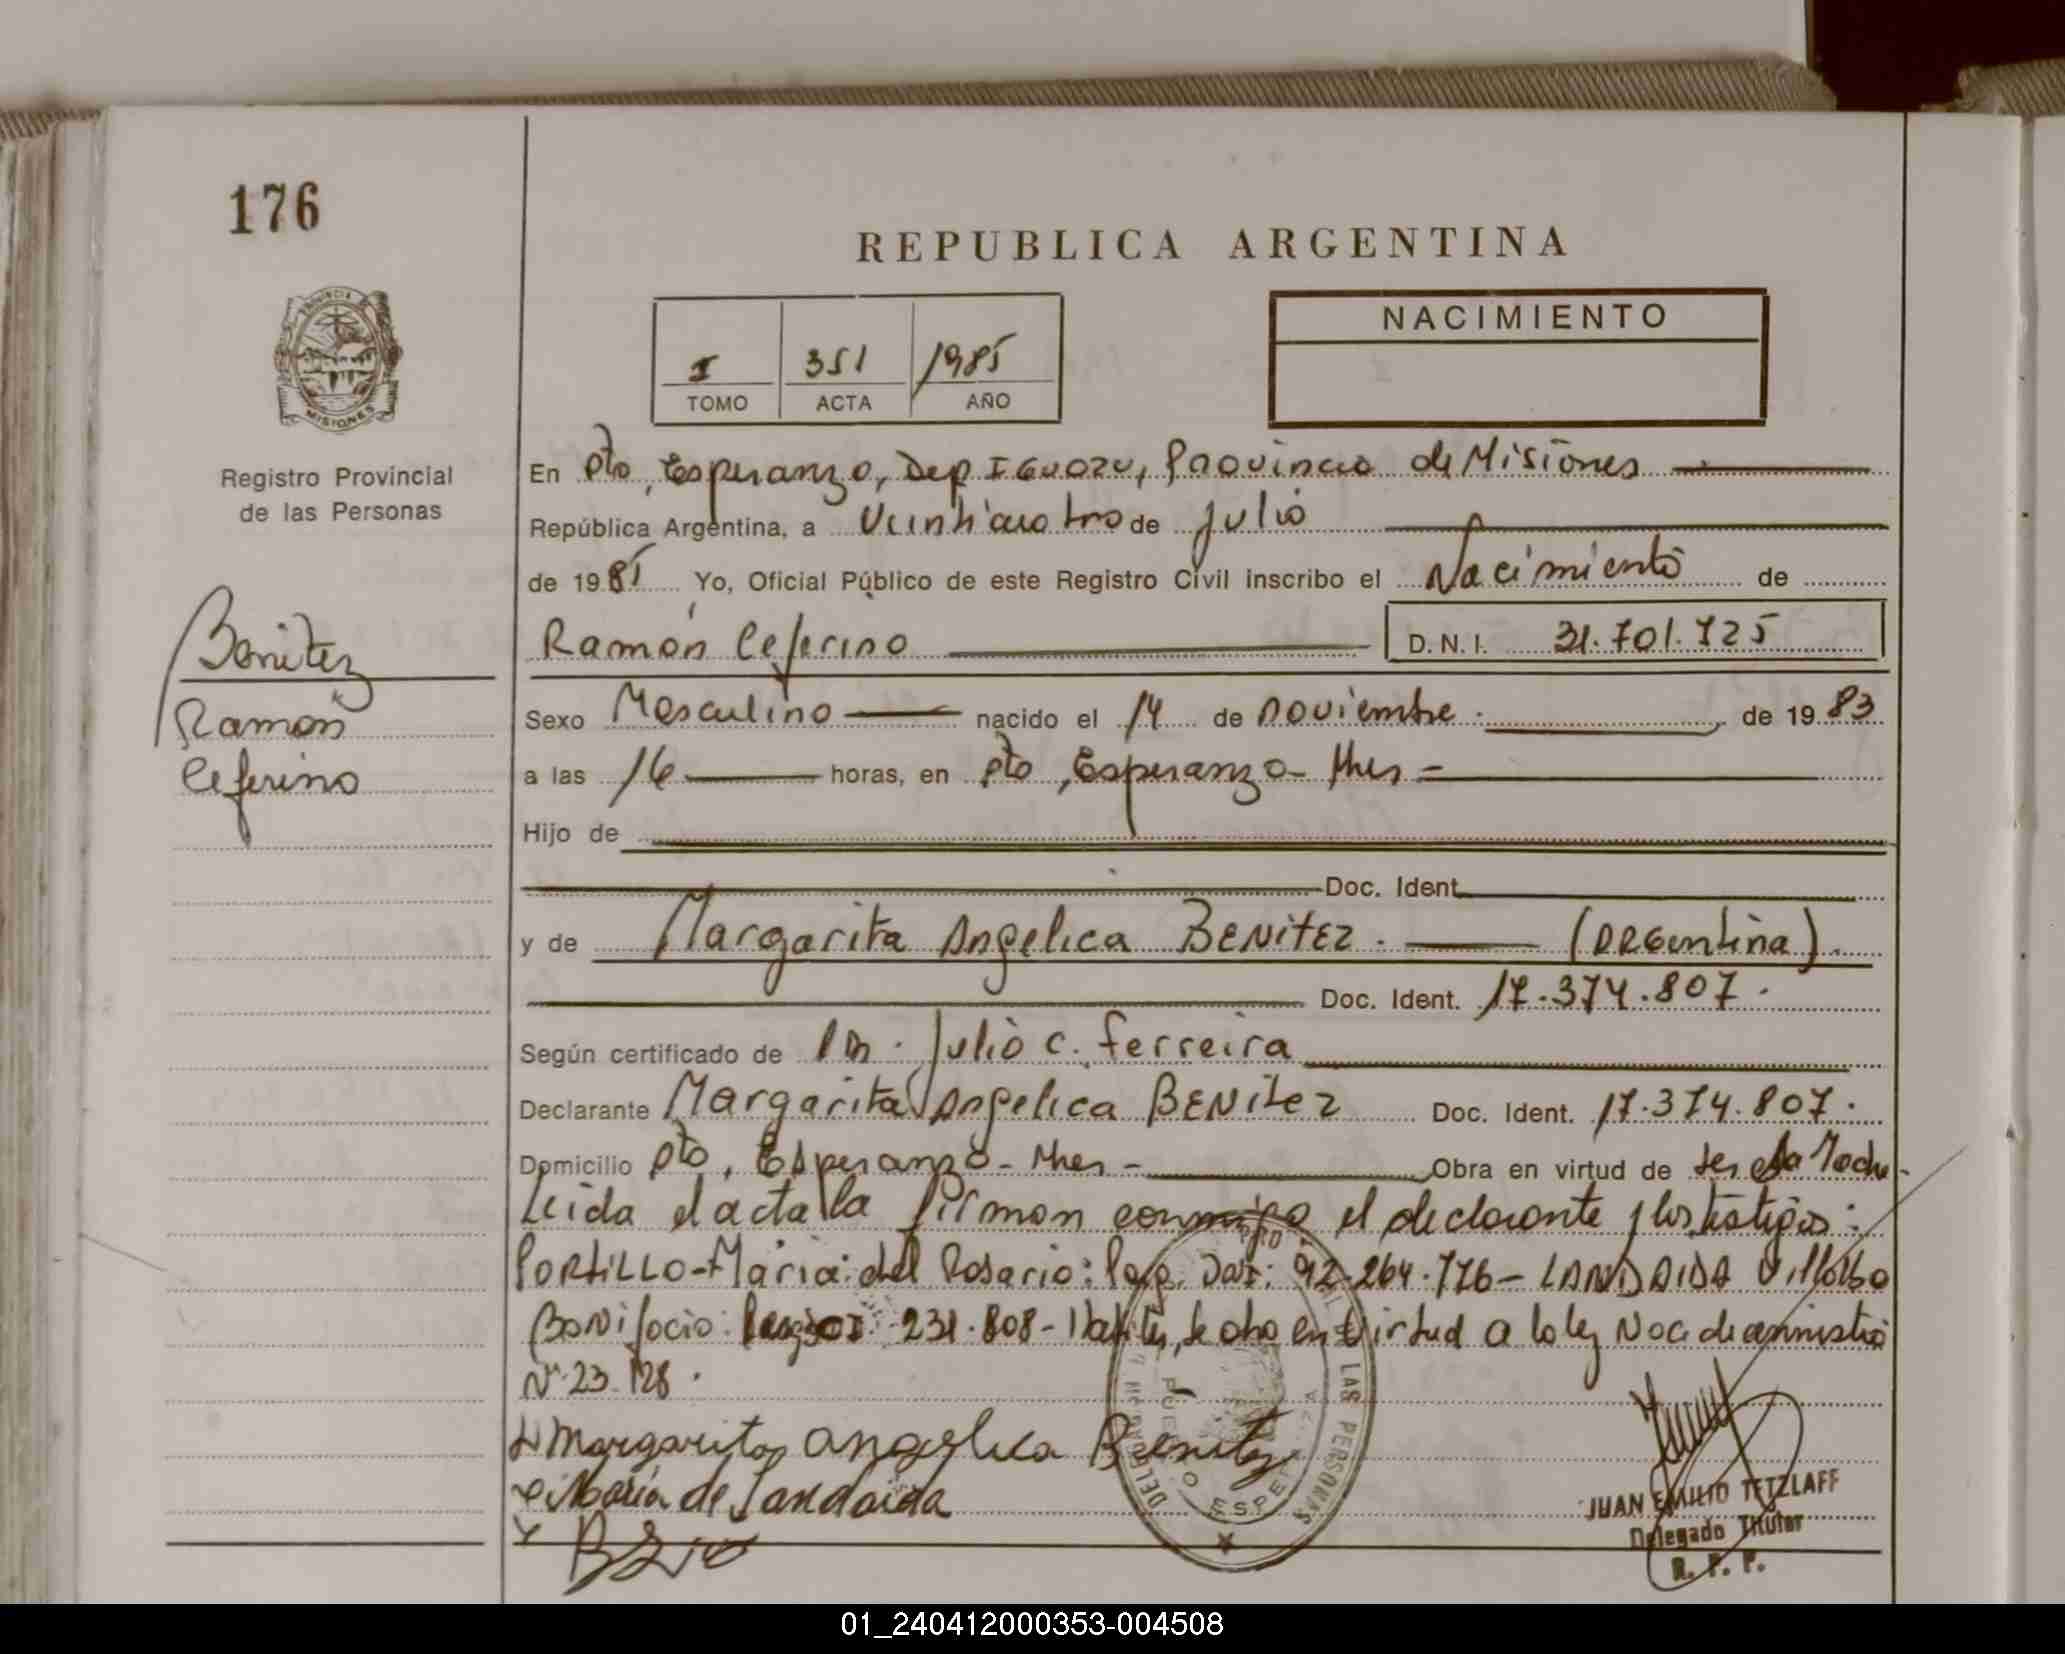 176
REPUBLICA ARGENTINA
I 351 1985
TOMO ACTA AÑO
NACIMIENTO
PROVINCIA DE MISIONES
Registro Provincial
de las Personas
Benitez
Ramón
Ceferino
En Pto. Esperanza, Dep IGUAZU, Provincia de Misiones
República Argentina, a Veinticuatro de julio
de 1985 Yo, Oficial Público de este Registro Civil inscribo el Nacimiento de
Ramón Ceferino D.N.I. 31.701.725
Sexo Masculino nacido el 14 de noviembre de 1983
a las 16 horas, en Pto, Esperanza - Mnes -
Hijo de
Doc. Ident.
y de Margarita Angelica BENITEZ. (ARGentina).
Doc. Ident. 17.374.807.
Según certificado de Dr. Julio C. Ferreira
Declarante Margarita Angelica BENITEZ Doc. Ident. 17.374.807.
Domicilio Pto, Esperanza - Mnes - Obra en virtud de ser
Leida el acta la firman conmigo el declarante y los testigos:
PORTILLO-Maria del Rosario: 92.264.776 - LANDAIDA Villalba
Bonifacio: 231.808 - en virtud a la ley Nac de amnistia
Nº 23.128.
Margarita angelica Benitez
Maria de Landaida
DELEGACION PUERTO ESPERANZA LAS PERSONAS
JUAN EMILIO TETZLAFF
Delegado Titular
R. P. P.
01_240412000353-004508